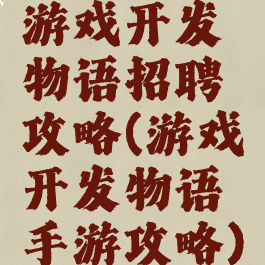 游戏开发
物语招聘
攻略(游戏
开发物语
手游攻略)